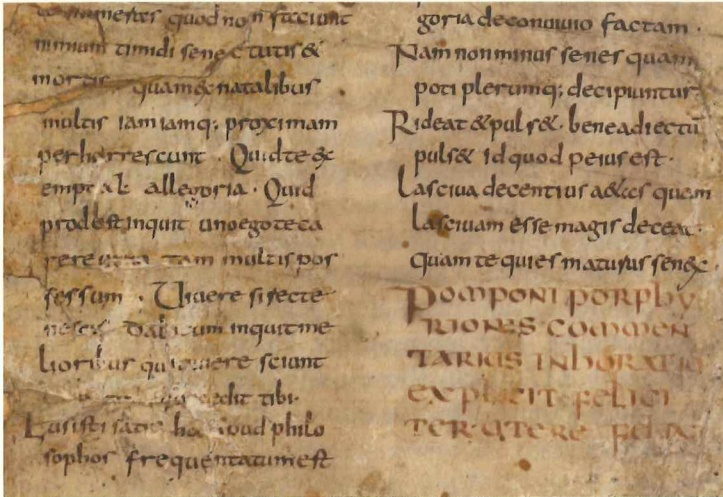 quod non faciunt
nimium timidi senectutis &
mortis quam ex natalibus
multis iam iamq; proximam
perhorrescunt. Quid te ex
empt allegoria. Quid
prodest inquit uno ego te ca
rere tam multis pos
sessum. Vivere si recte
nescis inquit me
lioribus qui vivere sciunt
tibi.
Lusisti satis philo
sophos frequentatum est
goria de convivio factam.
Nam non minus senes quam
poti plerumq; decipiuntur
Rideat & puls&. bene adiectū
puls& id quod peius est.
Lasciva decentius a&as quam
lasciviam esse magis deceat
quam te qui es maturus senex.
POMPONI PORPHY
RIONIS COMMEN
TARIUS IN HORATIO
EXPLICIT FELICI
TER UTERE FELIX